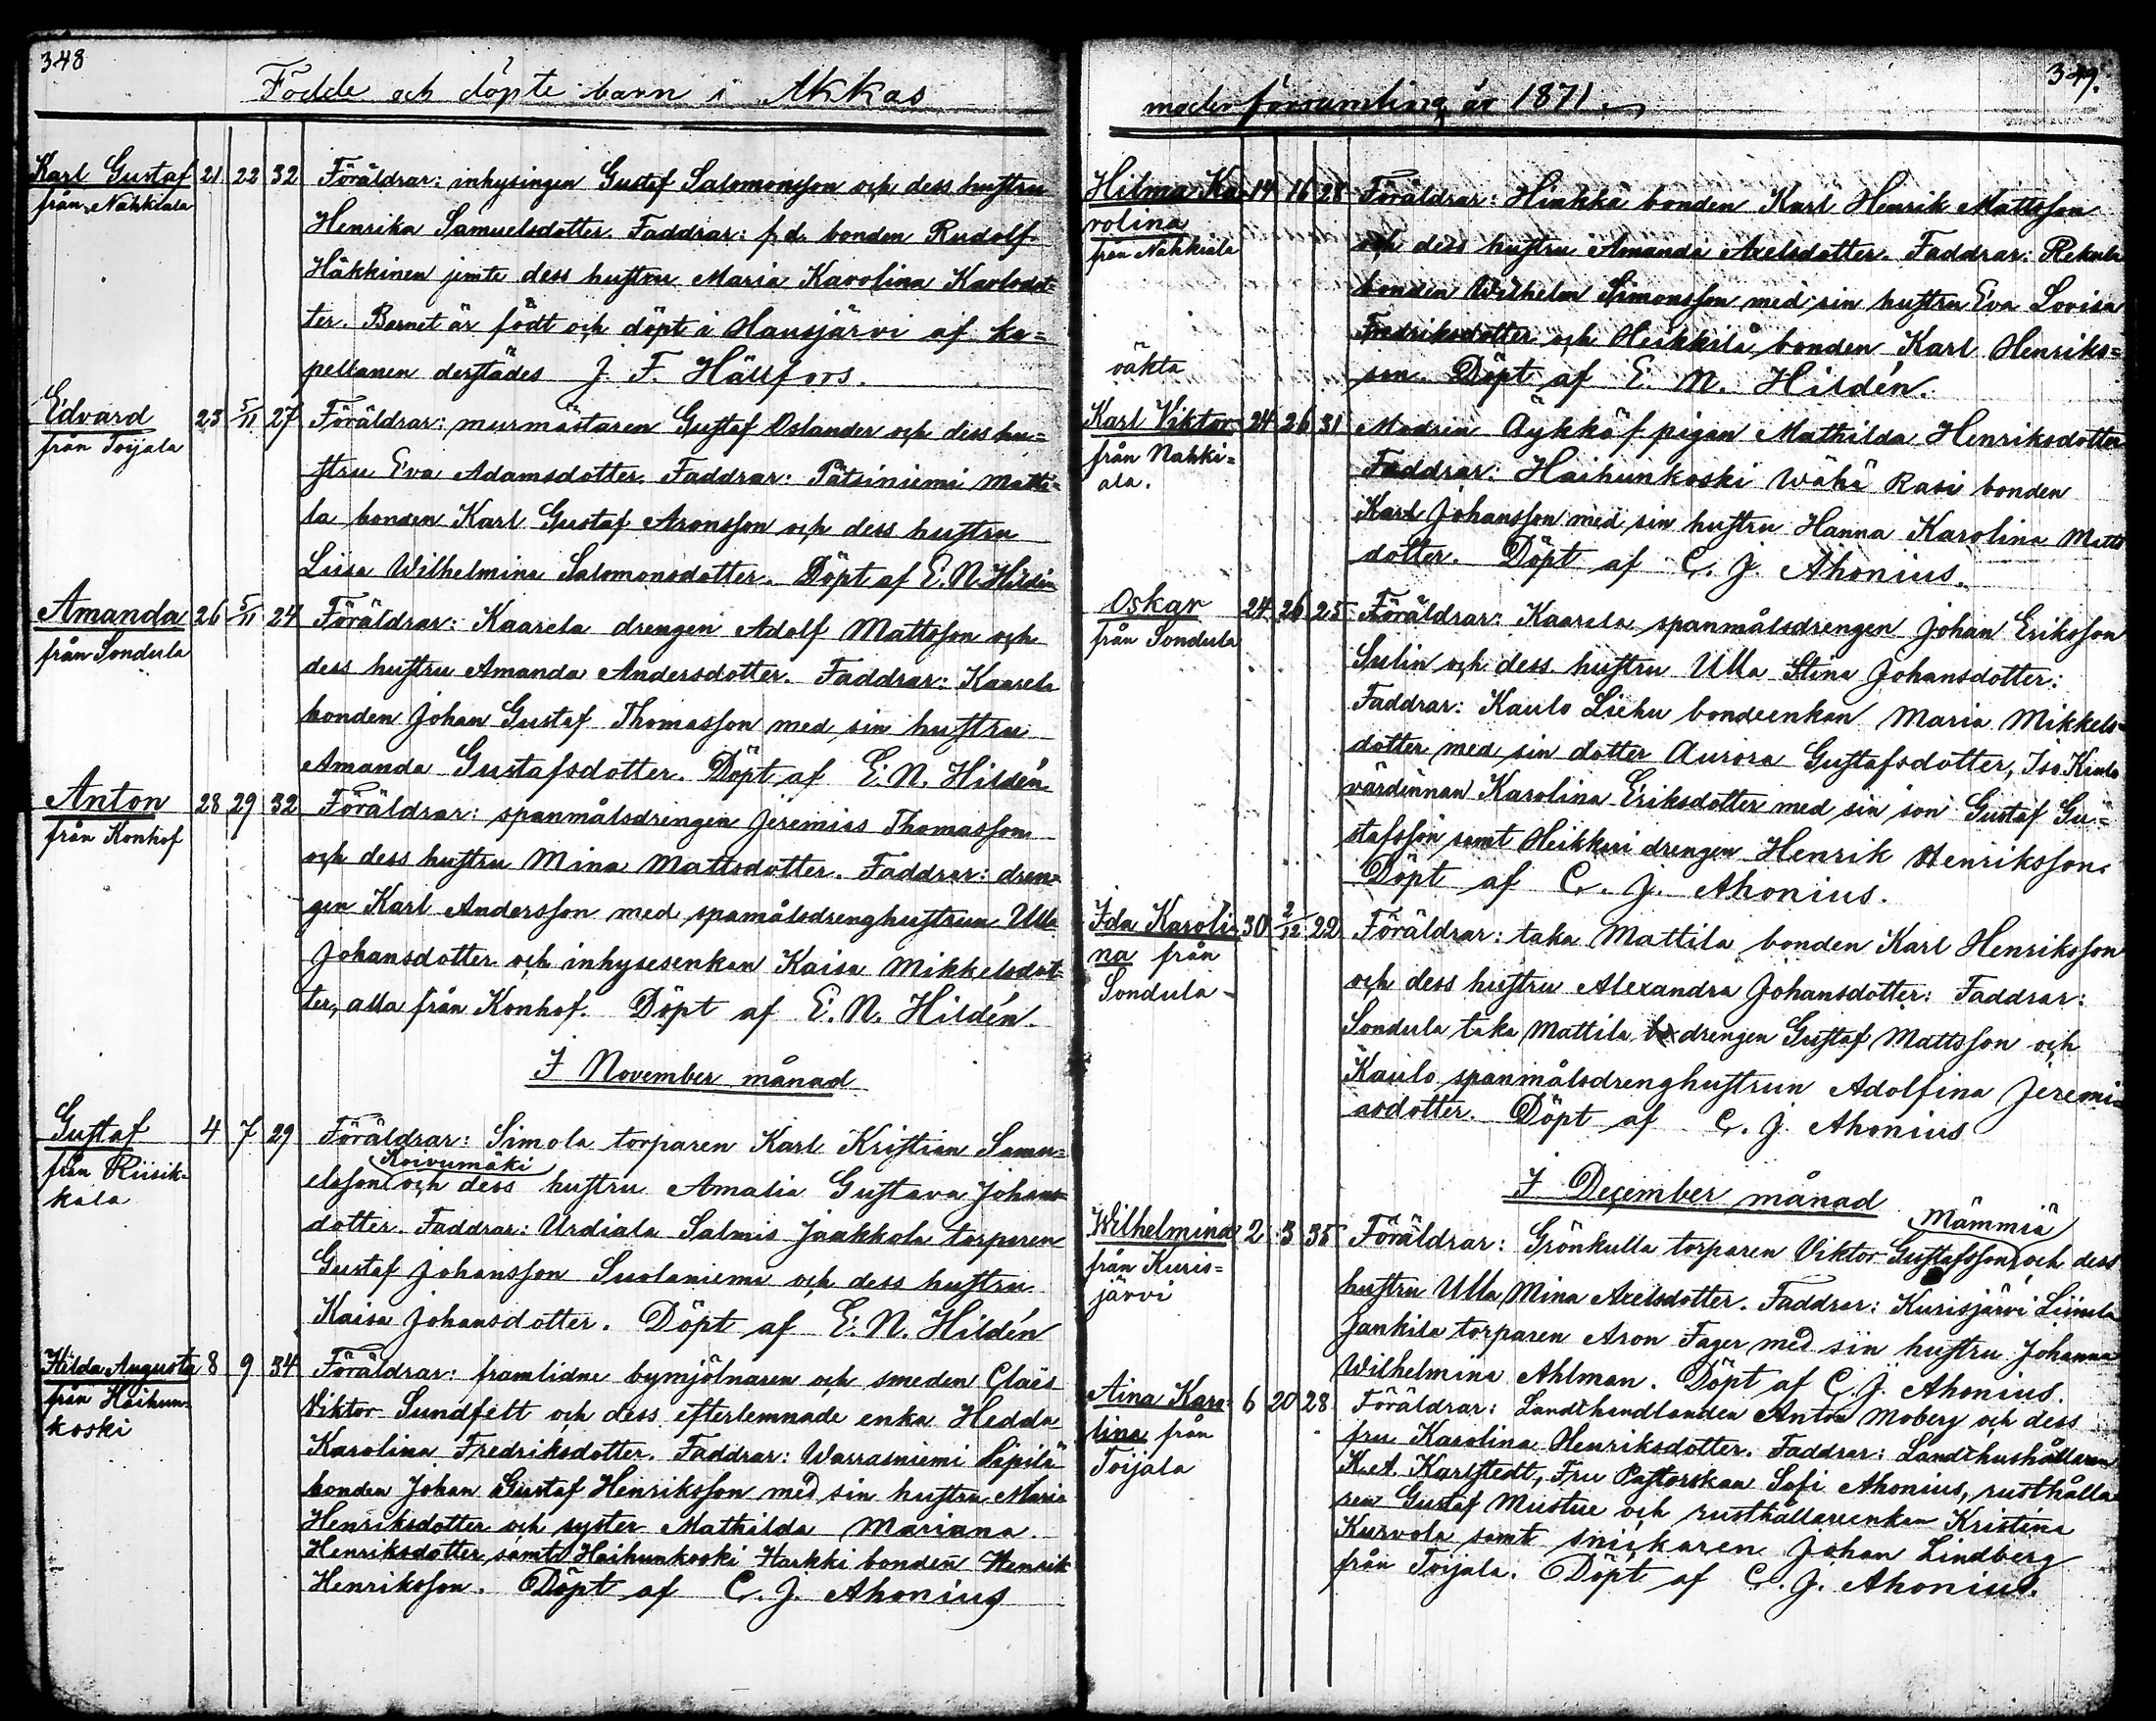 348
Födde och döpte barn i Akkas
Karl Gustaf 21 22 32 Föräldrar: inhysingen Gustaf Salomonsson och dess hustru
från Nahkiala
Henrika Samuelsdotter. Faddrar: f. d. bonden Rudolf
Häkkinen jemte dess hustru Maria Karolina Karlsdot-
ter. Barnet är födt och döpt i Hausjärvi af ka-
pellanen derstädes J. F. Hällfors.
Edvard 23 5/11 27 Föräldrar: murmästaren Gustaf Oslander och dess hu-
från Toijala
stru Eva Adamsdotter. Faddrar: Pätsiniemi Matti-
la bonden Karl Gustaf Aronsson och dess hustru
Liisa Wilhelmina Salomonsdotter. Döpt af E. N. Hildén
Amanda 26 5/11 24 Föräldrar: Kaarela drengen Adolf Mattsson och
från Sondula
dess hustru Amanda Andersdotter. Faddrar: Kaarela
bonden Johan Gustaf Thomasson med sin hustru
Amanda Gustafsdotter. Döpt af E. N. Hildén
Anton 28 29 32 Föräldrar: spanmålsdrengen Jeremias Thomasson
från Konhof
och dess hustru Mina Mattsdotter. Faddrar: dren-
gen Karl Andersson med spamålsdrenghustrun Ulla
Johansdotter och inhysesenkan Kaisa Mikkelsdot-
ter, alla från Konhof. Döpt af E. N. Hildén.
I November månad
Gustaf 4 7 29 Föräldrar: Simola torparen Karl Kristian Samu-
från Riisik-
kala
Koivumäki
elsson och dess hustru Amalia Gustava Johans-
dotter. Faddrar: Urdiala Salmis Jaakkola torparen
Gustaf Johansson Suolaniemi och dess hustru
Kaisa Johansdotter. Döpt af E. N. Hildén
Hilda Augusta 8 9 34 Föräldrar: framlidne bymjölnaren och smeden Claës
från Haihun-
koski
Viktor Sundfelt och dess efterlemnade enka Hedda
Karolina Fredriksdotter. Faddrar: Warrasniemi Sipilä
bonden Johan Gustaf Henriksson med sin hustru Maria
Henriksdotter och syster Mathilda Mariana
Henriksdotter, samt Haihunkoski Harkki bonden Henrik
Henriksson. Döpt af C. J. Ahonius
349.
moderförsamling år 1871.
Hilma Ka- 14 16 28 Föräldrar: Hinkkä bonden Karl Henrik Mattsson
rolina
från Nahkiala
och dess hustru Amanda Axelsdotter. Faddrar: Rekula
bonden Wilhelm Simonsson med sin hustru Eva Lovisa
Fredriksdotter och Heikkilä bonden Karl Henriks-
son. Döpt af E. N. Hildén.
oäkta
Karl Viktor 24 26 31 Modren Äykkä f pigan Mathilda Henriksdotter
från Nahki-
ala.
Faddrar: Haihunkoski Wähä Rasi bonden
Karl Johansson med sin hustru Hanna Karolina Matts
dotter. Döpt af C. J. Ahonius.
Oskar 24 26 25 Föräldrar: Kaarela spanmålsdrengen Johan Eriksson
från Sondula
Sulin och dess hustru Ulla Stina Johansdotter:
Faddrar: Kaulo Liehu bondeenkan Maria Mikkels-
dotter med sin dotter Aurora Gustafsdotter, Iso Kaulo
värdinnan Karolina Eriksdotter med sin son Gustaf Gu-
stafsson samt Heikkeri drengen Henrik Henriksson.
Döpt af C. J. Ahonius.
Ida Karoli- 30 2/12 22 Föräldrar: taka Mattila bonden Karl Henriksson
na från
Sondula
och dess hustru Alexandra Johansdotter: Faddrar:
Sondula taka Mattila drengen Gustaf Mattsson och
Kaulo spanmålsdrenghustrun Adolfina Jeremi-
asdotter. Döpt af C. J. Ahonius
I December månad
Mämmiä
Wilhelmina 2 3 35 Föräldrar: Grönkulla torparen Viktor Gustafsson och dess
från Kuris-
järvi
hustru Ulla Mina Axelsdotter. Faddrar: Kurisjärvi Liinula
Jankila torparen Aron Fager med sin hustru Johanna
Wilhelmina Ahlman. Döpt af C. J. Ahonius.
Aina Karo- 6 20 28 Föräldrar: Landthandlanden Anton Moberg och dess
lina från
Toijala
fru Karolina Henriksdotter. Faddrar: Landthushållaren
K. A. Karlstedt, Fru Pastorskan Sofi Ahonius, rusthålla
ren Gustaf Mustue och rusthållareenkan Kristina
Kurvola samt snickaren Johan Lindberg
från Toijala. Döpt af C. J. Ahonius.